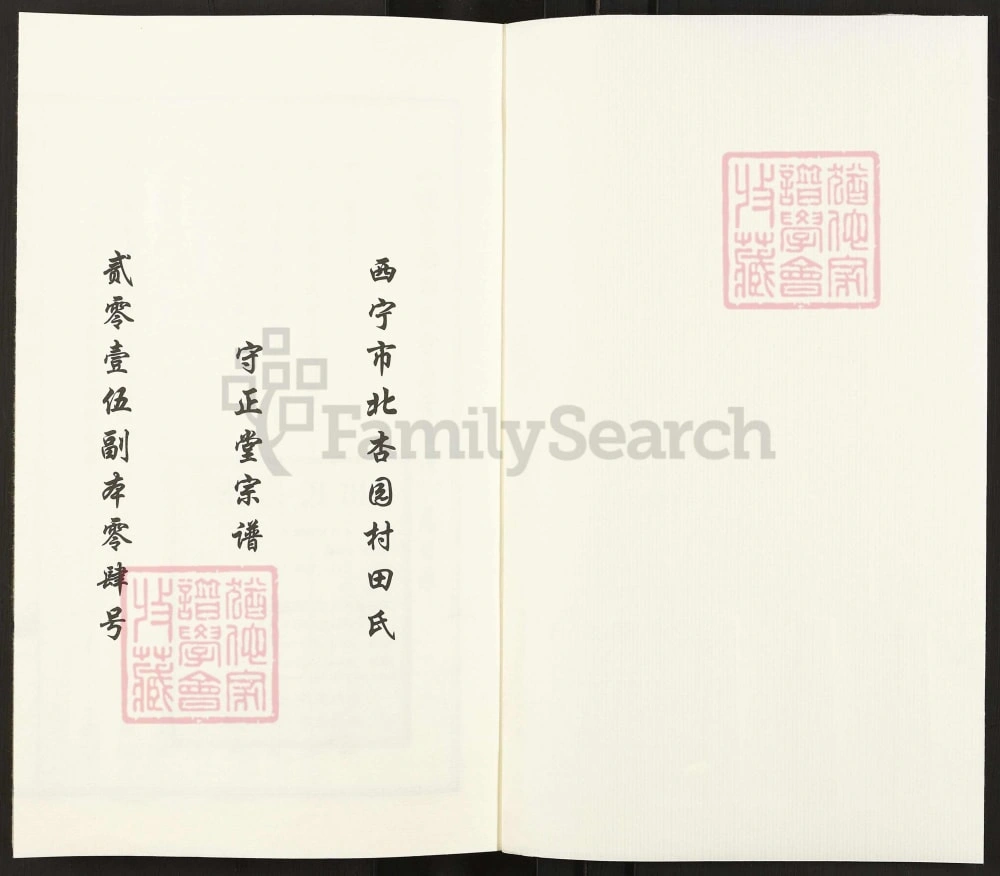 猶他家
譜學會
收藏
西宁市北杏园村田氏
守正堂宗谱
贰零壹伍副本零肆号
猶他家
譜學會
收藏
FamilySearch